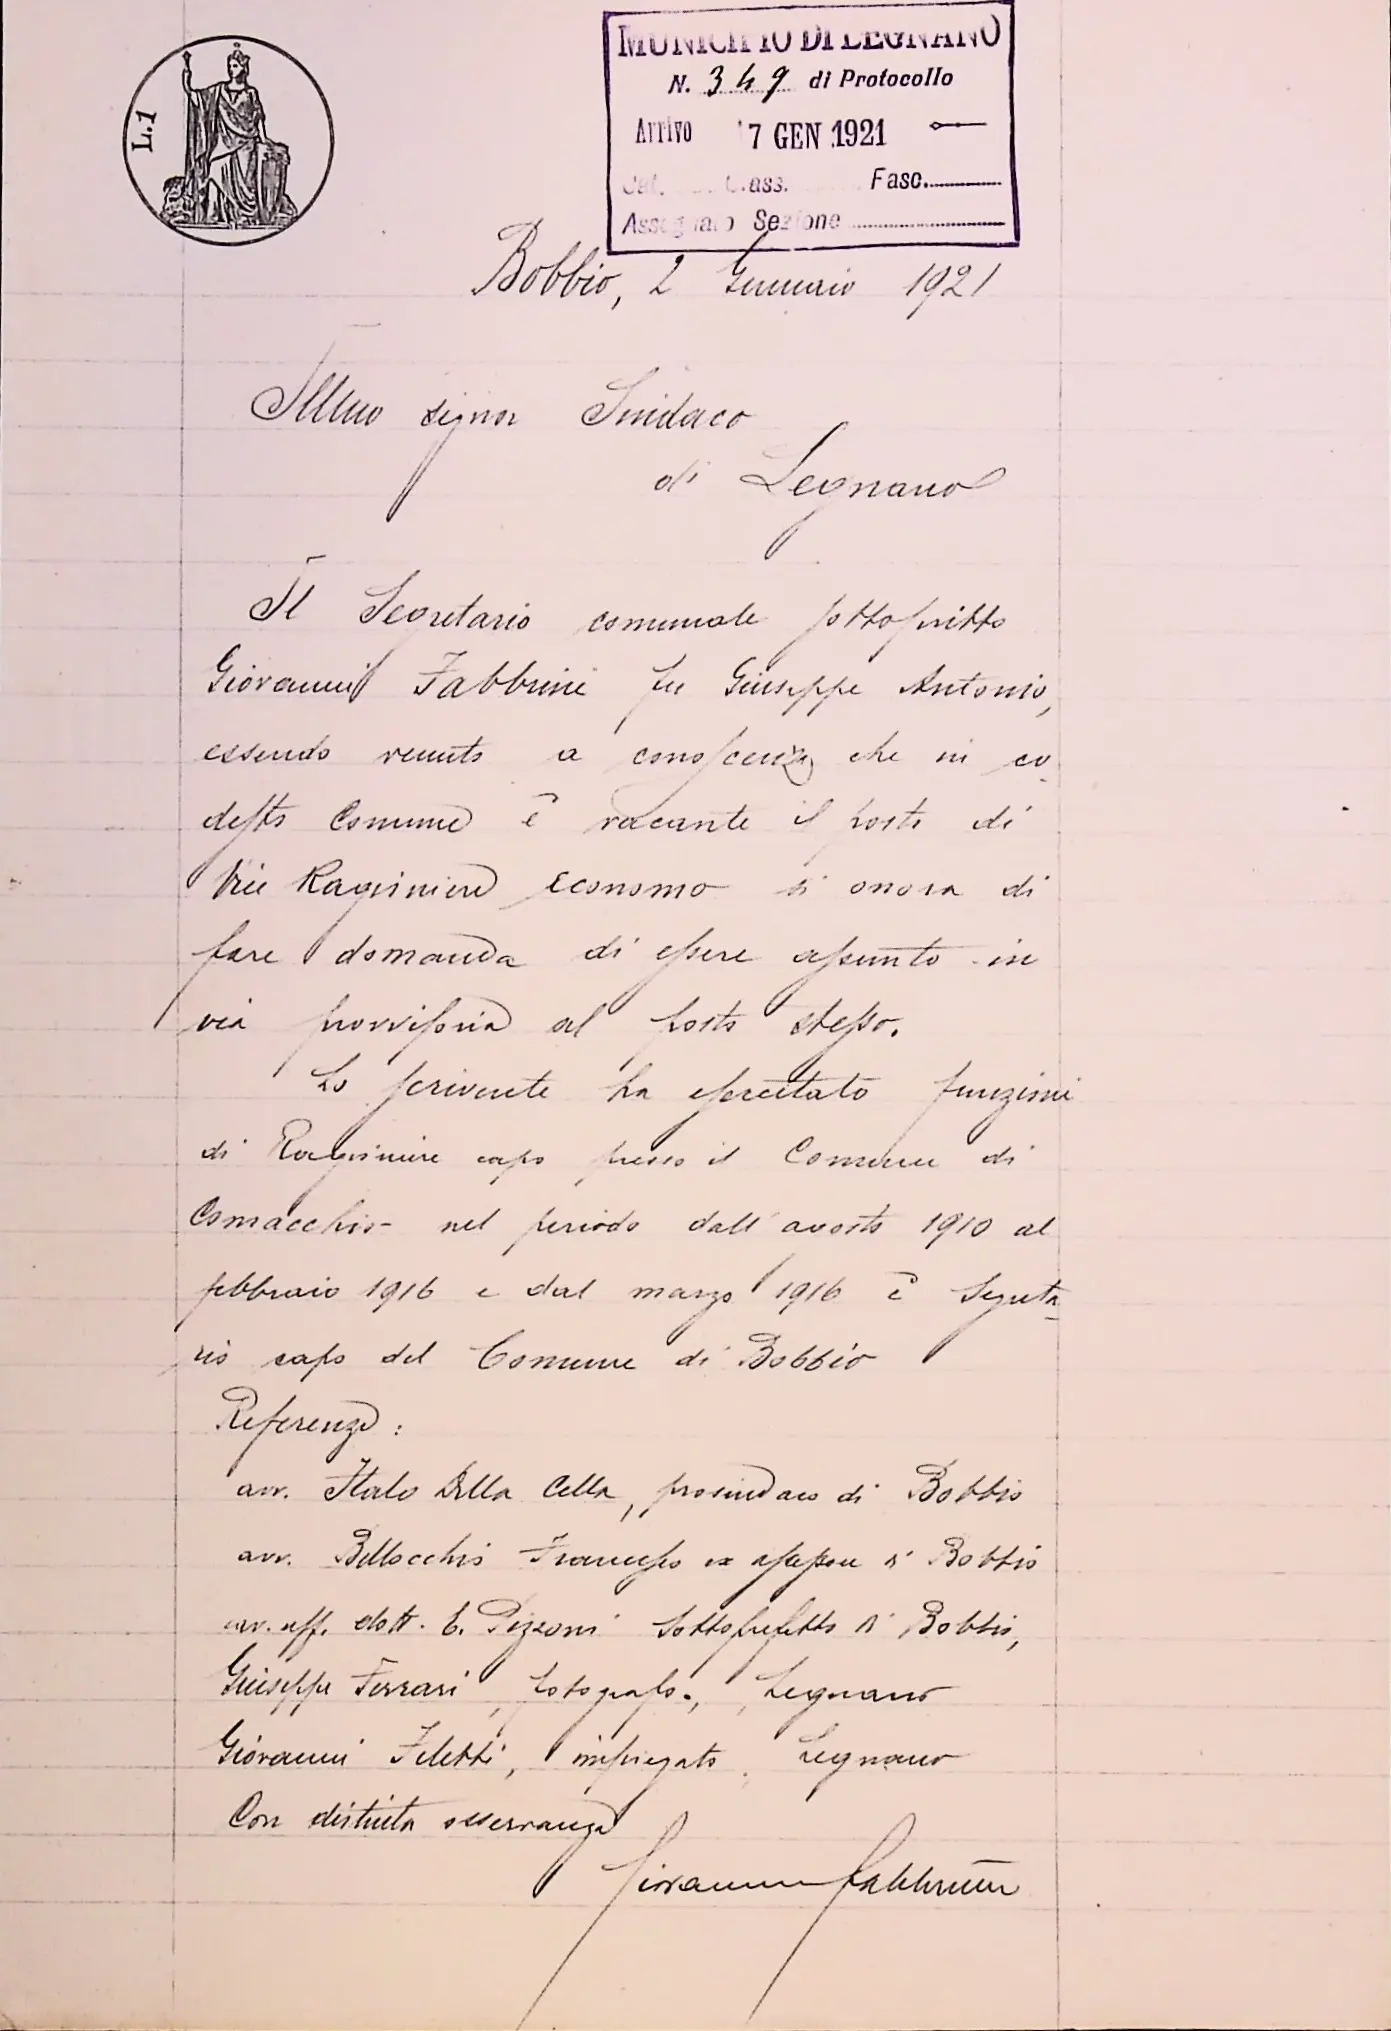 L.1
MUNICIPIO DI LEGNANO
N. 349 di Protocollo
Arrivo 7 GEN 1921
Cat. Class. Fasc.
Assegnato Sezione
Bobbio, 2 Gennaio 1921
Illmo signor Sindaco
di Legnano
Il Segretario comunale sottoscritto
Giovanni Fabbrini fu Giuseppe Antonio,
essendo venuto a conoscenza che in co-
desto Comune è vacante il posto di
Vice Ragioniere Economo si onora di
fare domanda di essere assunto in
via provvisoria al posto stesso.
Lo scrivente ha esercitato funzioni
di Ragioniere capo presso il Comune di
Comacchio nel periodo dall'agosto 1910 al
febbraio 1916 e dal marzo 1916 è Segreta-
rio capo del Comune di Bobbio
Referenze:
avv. Italo Della Cella, prosindaco di Bobbio
avv. Bellocchio Francesco ex assessore di Bobbio
cav. uff. dott. E. Pizzoni Sottoprefetto di Bobbio,
Giuseppe Ferrari, fotografo, Legnano
Giovanni Filetti, impiegato, Legnano
Con distinta osservanza
Giovanni Fabbrini